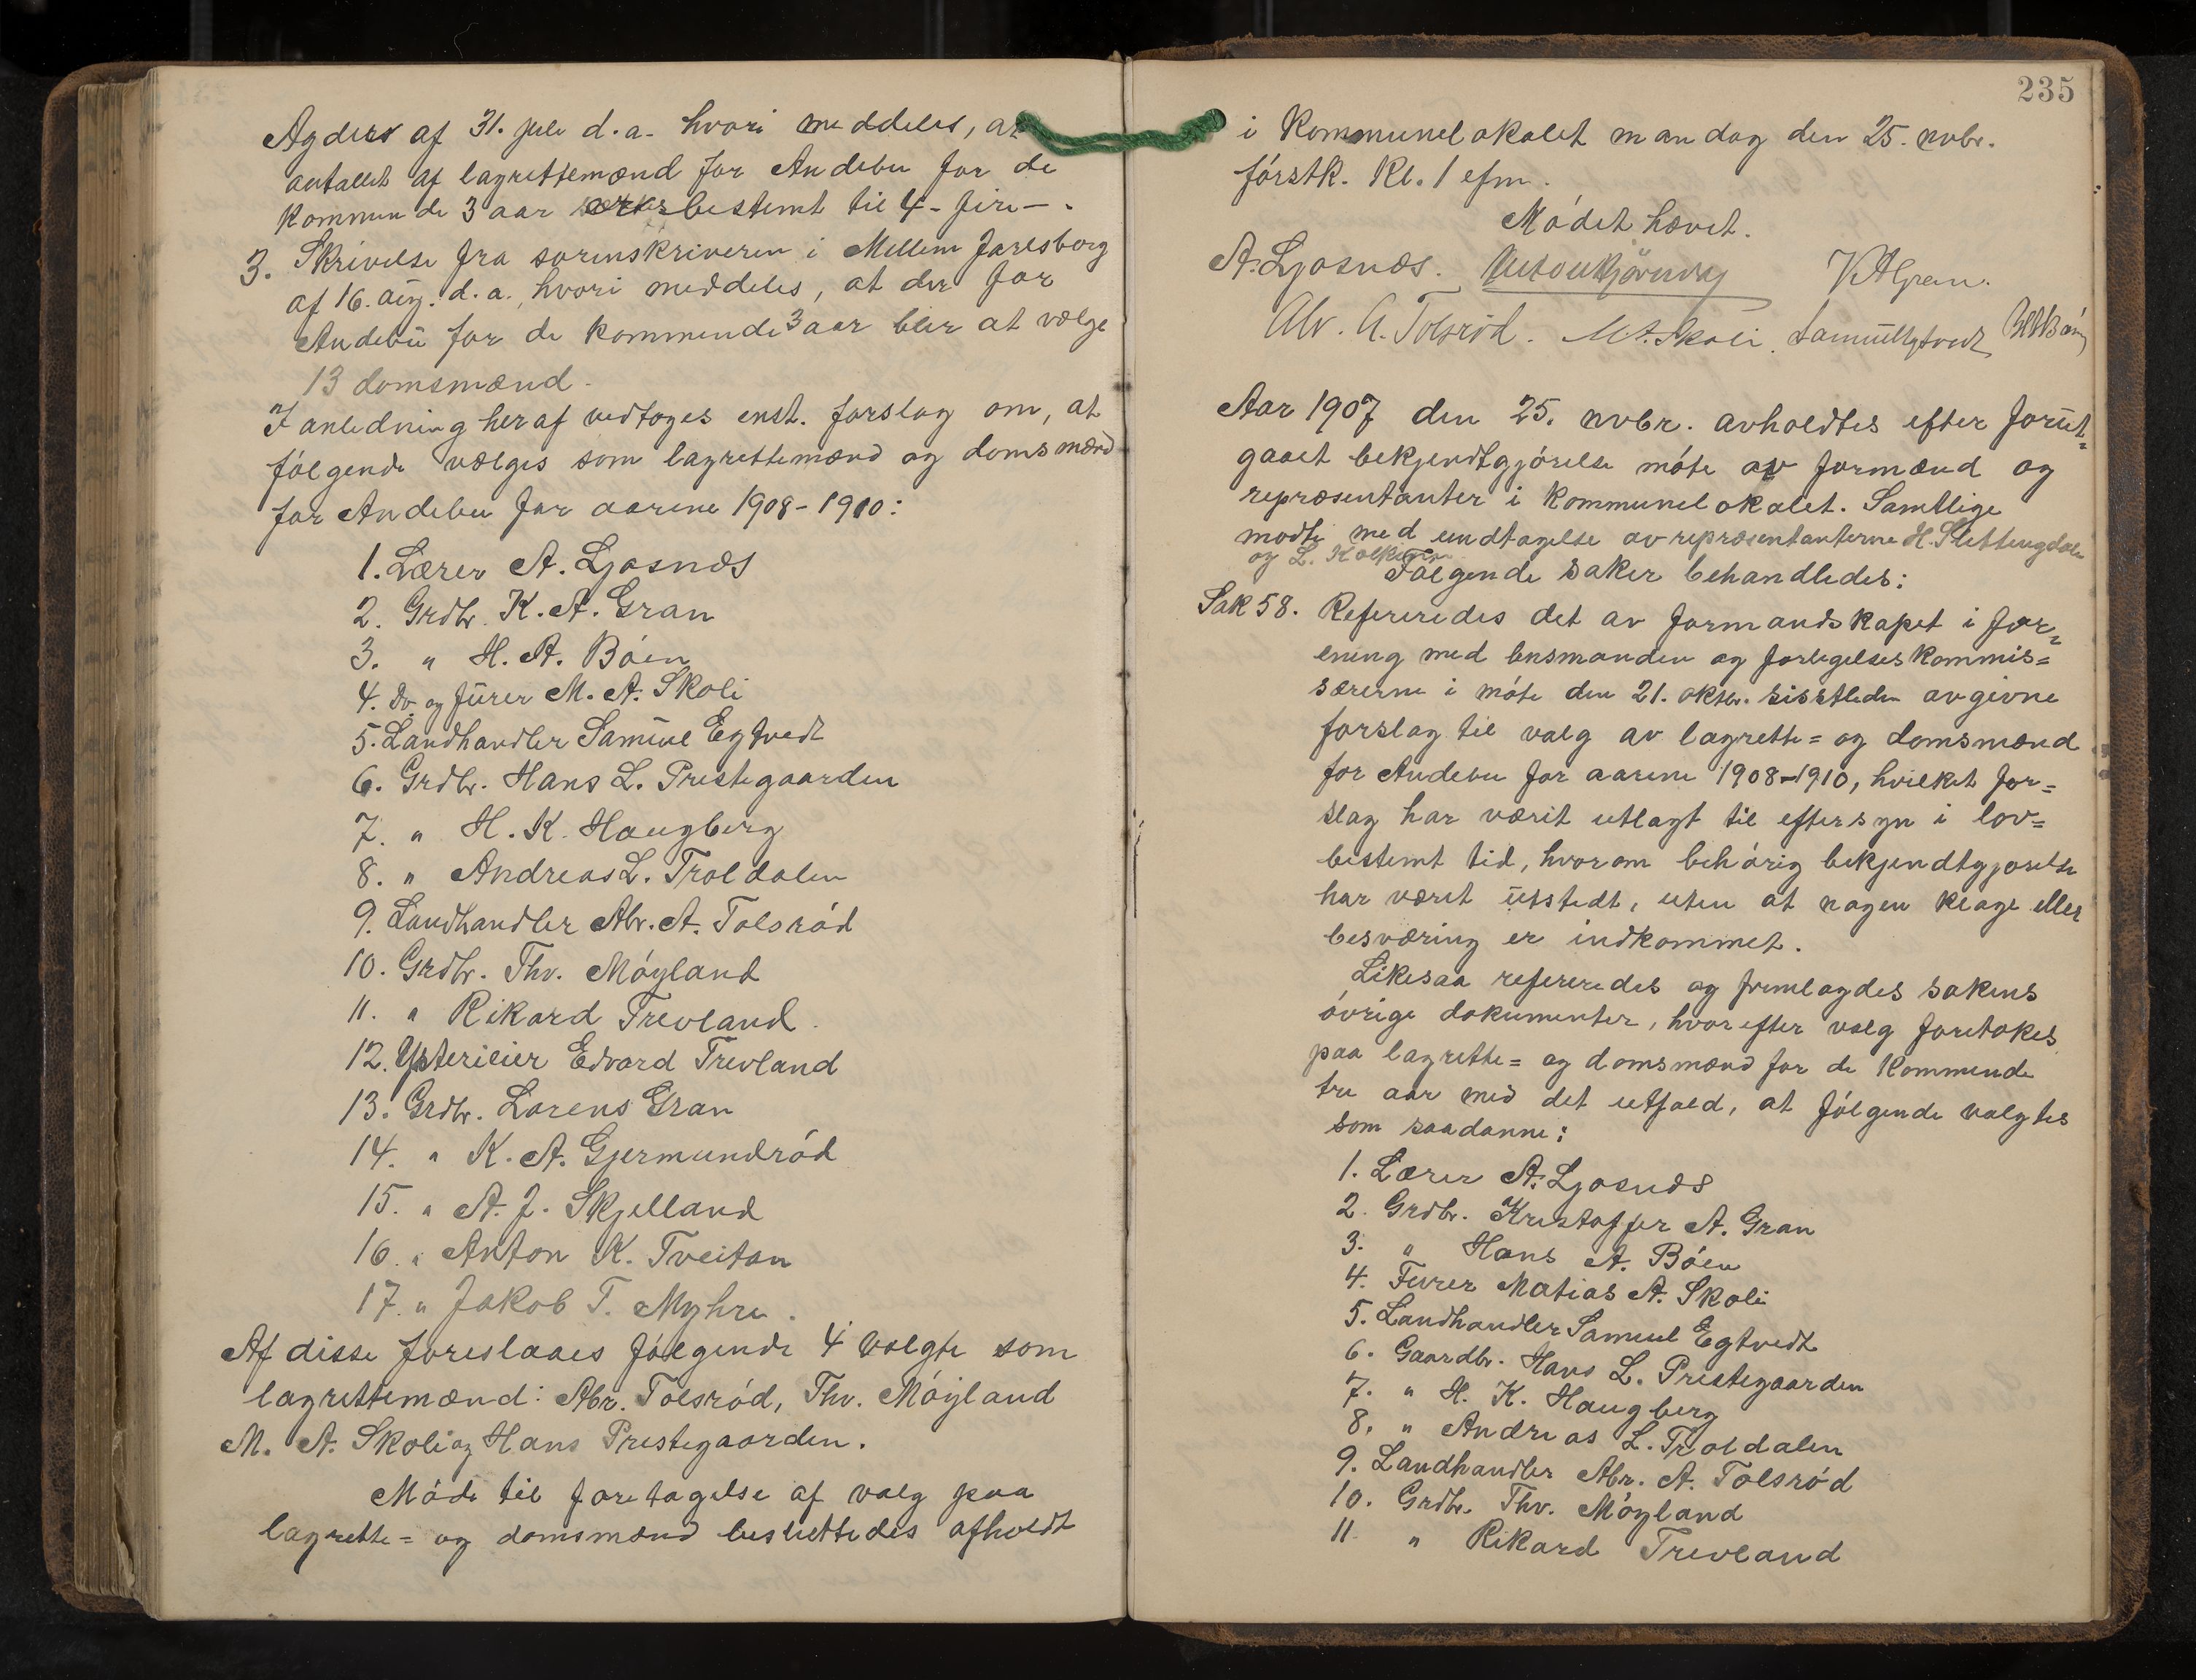 Agders af 31. juli d.a. hvori meddeles, at
antallet af lagrettemænd for Andebu for de
kommende 3 aar bestemt til 4 - fire - .
3. Skrivelse fra sorenskriveren i Mellem Jarlsberg
af 16. aug. d.a., hvori meddeles, at der for
Andebu for de kommende 3 aar blir at vælge
13 domsmænd.
I anledning heraf vedtoges enst. forslag om, at
følgende vælges som lagrettemænd og domsmænd
for Andebu for aarene 1908-1910:
1. Lærer A. Ljosnæs
2. Grdbr. K. A. Gran
3. " H. A. Böen
4. Do. og furer M. A. Skoli
5. Landhandler Samuel Egtvedt
6. Grdbr. Hans L. Prestegaarden
7. " H. K. Haugberg
8. " Andreas L. Troldalen
9. Landhandler Abr. A. Tolsröd
10. Grdbr. Thv. Möyland
11. " Rikard Trevland
12. Ysterieier Edvard Trevland
13. Grdbr. Lorens Gran
14. " K. A. Gjermundröd
15. " A. J. Skjelland
16. " Anton K. Tveitan
17. " Jakob T. Myhre.
Af disse foreslaaes følgende 4 valgte som
lagrettemænd: Abr. Tolsröd, Thv. Möyland
M. A. Skoli og Hans Prestegaarden.
Möde til foretagelse af valg paa
lagrette= og domsmænd besluttedes afholdt
235
i Kommunelokalet mandag den 25. nvbr.
förstk. Kl. 1 efm.
Mödet hævet.
A. Ljosnæs. K A Gran.
Abr. A. Tolsröd. M. A. Skoli. Samuel Egtvedt H A Böen
Aar 1907 den 25. nvbr. avholdtes efter forut=
gaaet bekjendtgjörelse möte av formænd og
repræsentanter i Kommunelokalet. Samtlige
mødte med undtagelse av repræsentanterne H. Slettingdalen
og L.
Følgende saker behandledes:
Sak 58. Refereredes det av formandskapet i for=
ening med lensmanden og forligelseskommis=
særerne i möte den 21. oktbr. sisstleden avgivne
forslag til valg av lagrette= og domsmænd
for Andebu for aarene 1908-1910, hvilket for=
slag har værit utlagt til eftersyn i lov=
bestemt tid, hvorom behörig bekjendtgjørelse
har været utstedt, uten at nogen klage eller
besværing er indkommet.
Likesaa refereredes og fremlagdes sakens
övrige dokumenter, hvorefter valg foretokes
paa lagrette= og domsmænd for de kommende
tre aar med det utfald, at fölgende valgtes
som saadanne:
1. Lærer A. Ljosnæs
2. Grdbr. Kristoffer A. Gran
3. " Hans A. Böen
4. Furer Matias A. Skoli
5. Landhandler Samuel Egtvedt
6. Gaardbr. Hans L. Prestegaarden
7. " H. K. Haugberg
8. " Andreas L. Troldalen
9. Landhandler Abr. A. Tolsröd
10. Grdbr. Thv. Möyland
11. " Rikard Trevland